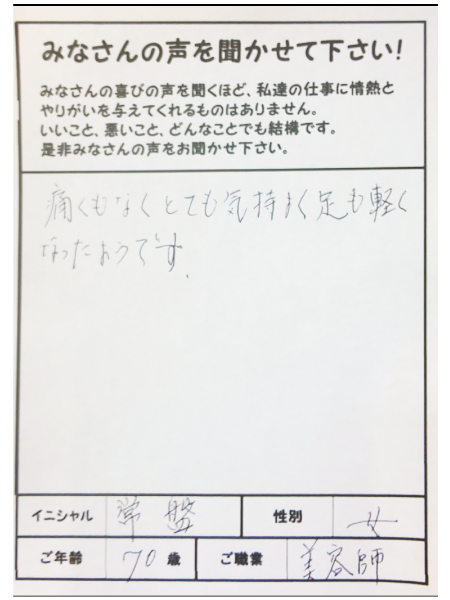 みなさんの声を聞かせて下さい!
みなさんの喜びの声を聞くほど、私達の仕事に情熱と
やりがいを与えてくれるものはありません。
いいこと、悪いこと、どんなことでも結構です。
是非みなさんの声をお聞かせ下さい。
痛くもなくとても気持よく足も軽く
なったようです.
イニシャル 常盤 性別 女
ご年齢 70歳 ご職業 美容師